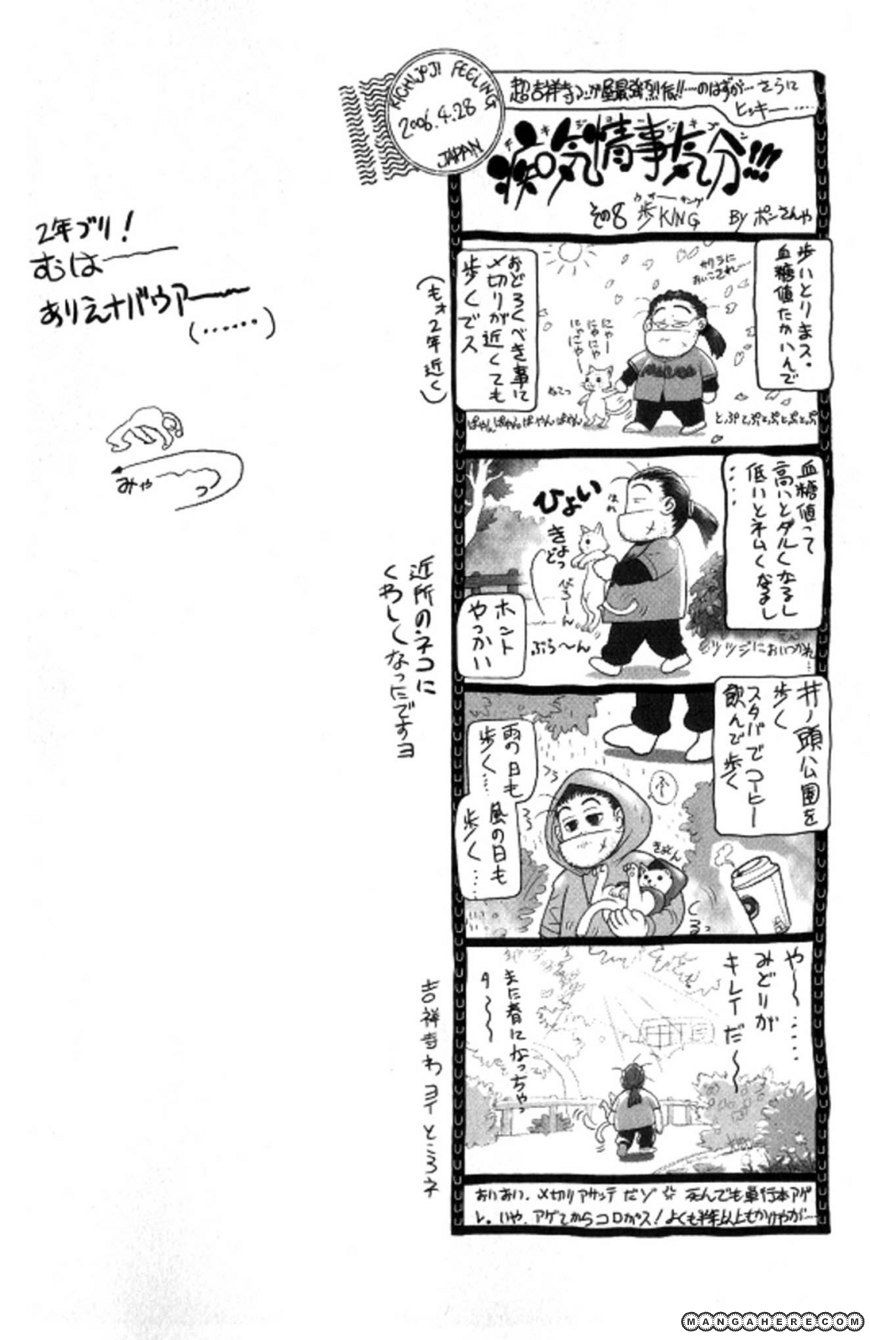 KICHIJOJI FEELING
2006.4.28
JAPAN
超吉祥寺マンガ屋最強烈伝!!…のはずが…さらに
ヒッキー……
痴気情事気分!!!
その8 歩KING
ウォーキング
By ポンさんや
歩いとりまス。
血糖値たかいんで
サクラに
おいこされ〜…
おどろくべき事に
〆切りが近くても
歩くでス
(もォ2年近く)
にゃー
にゃにゃ
にゃにゃー
ねこっ
とぷてぷとぷとぷとぷ
ぱやんぱやんぱやんぱやん
血糖値って
高いとダルくなるし
低いとネムくなるし
……
ひょい
きょ
どっ
べろーん
ぷら〜ん
ホント
やっかい
ツツジにおいつかれ…
近所のネコに
くわしくなったですヨ
井ノ頭公園を
歩く
スタバでコーヒー
飲んで歩く
雨の日も
歩く…
風の日も
歩く……
ふー
きゅん
くるっ
や〜……
みどりが
キレイだ〜
また春になっちゃっ
タ〜〜
吉祥寺わヨイところネ
おいおい、〆切りアサッテだゾ 死んでも単行本アゲ
レ。いや、アゲてからコロがス!よくも半年以上もかけやが…
2年ブリ!
むは——
ありえナバウアー——
(……)
みゃ〜〜っ
MANGAHERE.COM